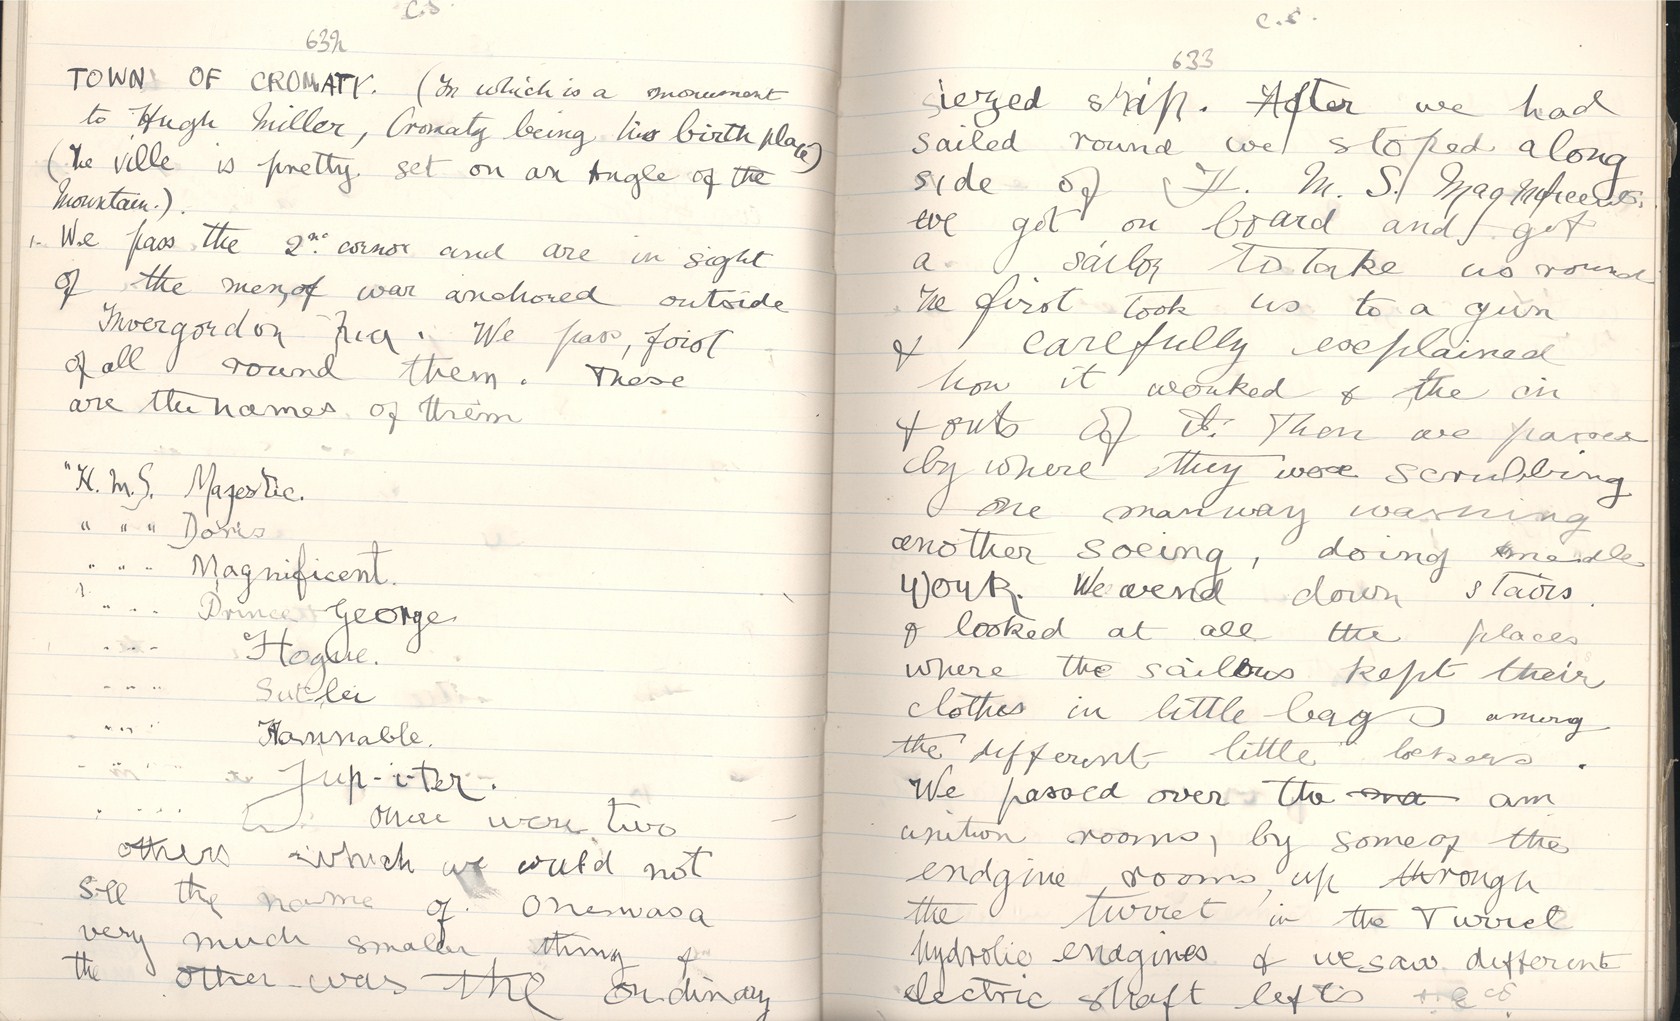 C.S.
632
TOWN OF CROMATY. (In which is a monument
to Hugh Miller, Cromaty being his birth place)
(The ville is pretty set on an Angle of the
Mountain.).
1. We pass the 2nd corner and are in sight
of the men, of war anchored outside
Invergordon. We pass, first
of all round them. These
are the names of them
"H.M.S. Majestic.
" " " Doris
" " " Magnificent.
" " " Prince George
" " " Hogue.
" " " Sutlei
" " " Hannable.
" " " Jup-iter.
were two
others which we could not
see the name of. One was a
very much smaler thing &
the other was the ordinary
C.S.
633
siezed ship. After we had
sailed round we stoped along
side of H. M. S. Magnificent.
we got on board and got
a sailor To take us round
He first took us to a gun
& carefully explained
how it worked & the in
& outs of it. Then we passes
by where they were scrubbing
one man way washing
another soeing, doing needle
work. We wend down stairs.
& looked at all the places
where the sailors kept their
clothes in little bags among
the different little lockers.
We passed over the ma am
unition rooms, by some of the
endgine rooms, up through
the turret in the Turret
hydrolic endgines & we saw different
electric shaft lefts